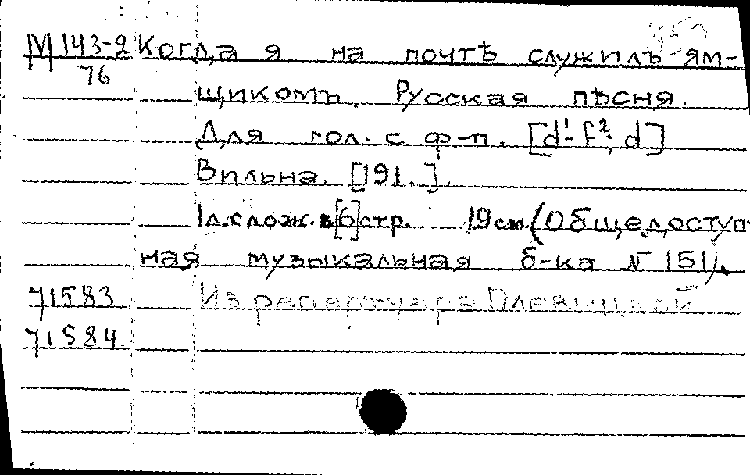 М 143-2 Когда я на почтѣ служилъ ям-
76
щикомъ. Русская пѣсня.
Для гол. с ф-п. [d¹-f²; d]
Вильна. [191.].
1л. слож. в [6] стр. 19 см. (Общедоступ-
ная музыкальная б-ка № 151).
71583 Из репертуара Плевицкой
71584